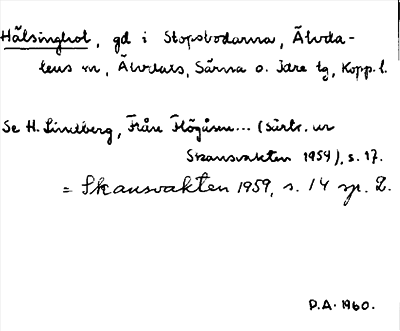 Hälsinghol, gd i Stopsbodarna, Älvda-
lens sn, Älvdals, Särna o. Idre tg, Kopp. l.
Se H. Lindberg, Från Högåsm... (särtr. ur
Skansvakten 1954), s. 17.
= Skansvakten 1959, s. 14 sp. 2.
P.A. 1960.